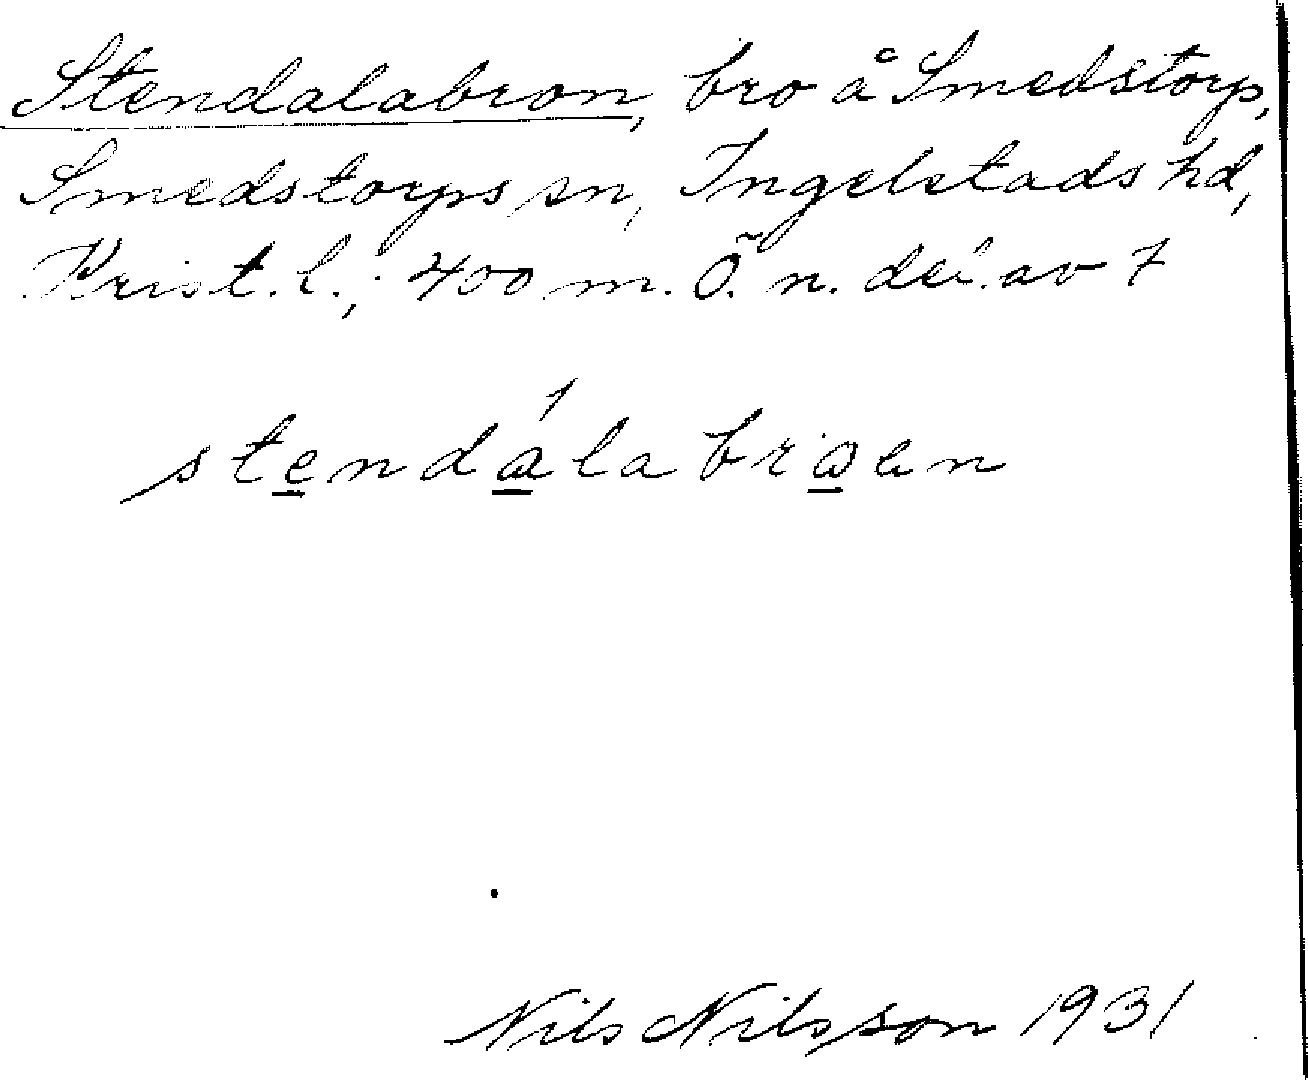 Stendalabron, bro å Smedstorp,
Smedstorps sn, Ingelstads hd,
Krist. l.; 400 m. Ö. n. del. av 7
stendálabroen
Nils Nilsson 1931